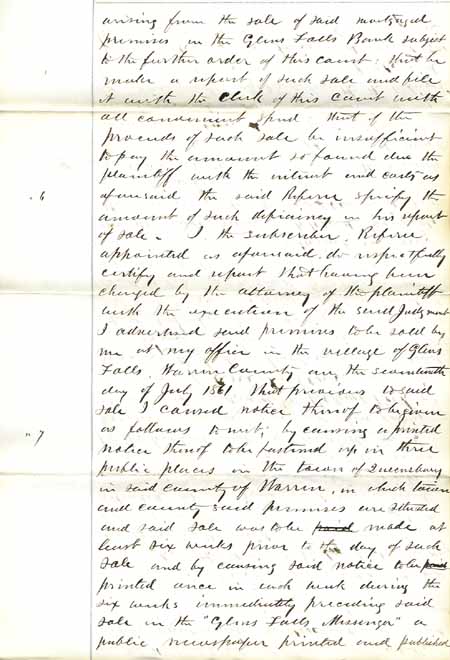 arising from the sale of said mortgaged
premises in the Glens Falls Bank subject
to the further order of this court: that he
make a report of such sale and file
it with the Clerk of this Court with
all convenient speed. that if the
proceeds of such sale be insufficient
to pay the amount so found due the
plaintiff with the interest and costs as
" 6
aforesaid the said Referee specify the
amount of such deficiency in his report
of sale. I the subscriber, Referee
appointed as aforesaid do respectfully
certify and report That having been
charged by the attorney of the plaintiff
with the execution of the said Judgment
I advertised said premises to be sold by
me at my office in the village of Glens
Falls Warren County on the seventeenth
day of July 1861 That previous to said
sale I caused notice thereof to be given
" 7
as follows to wit; by causing a printed
notice thereof to be fastened up in three
public places in the town of Queensbury
in said county of Warren, in which town
and county said premises are situated
and said sale was to be made at
least six weeks prior to the day of such
sale and by causing said notice to be
printed once in each week during the
six weeks immediately preceding said
sale in the "Glens Falls Messenger" a
public newspaper printed and published